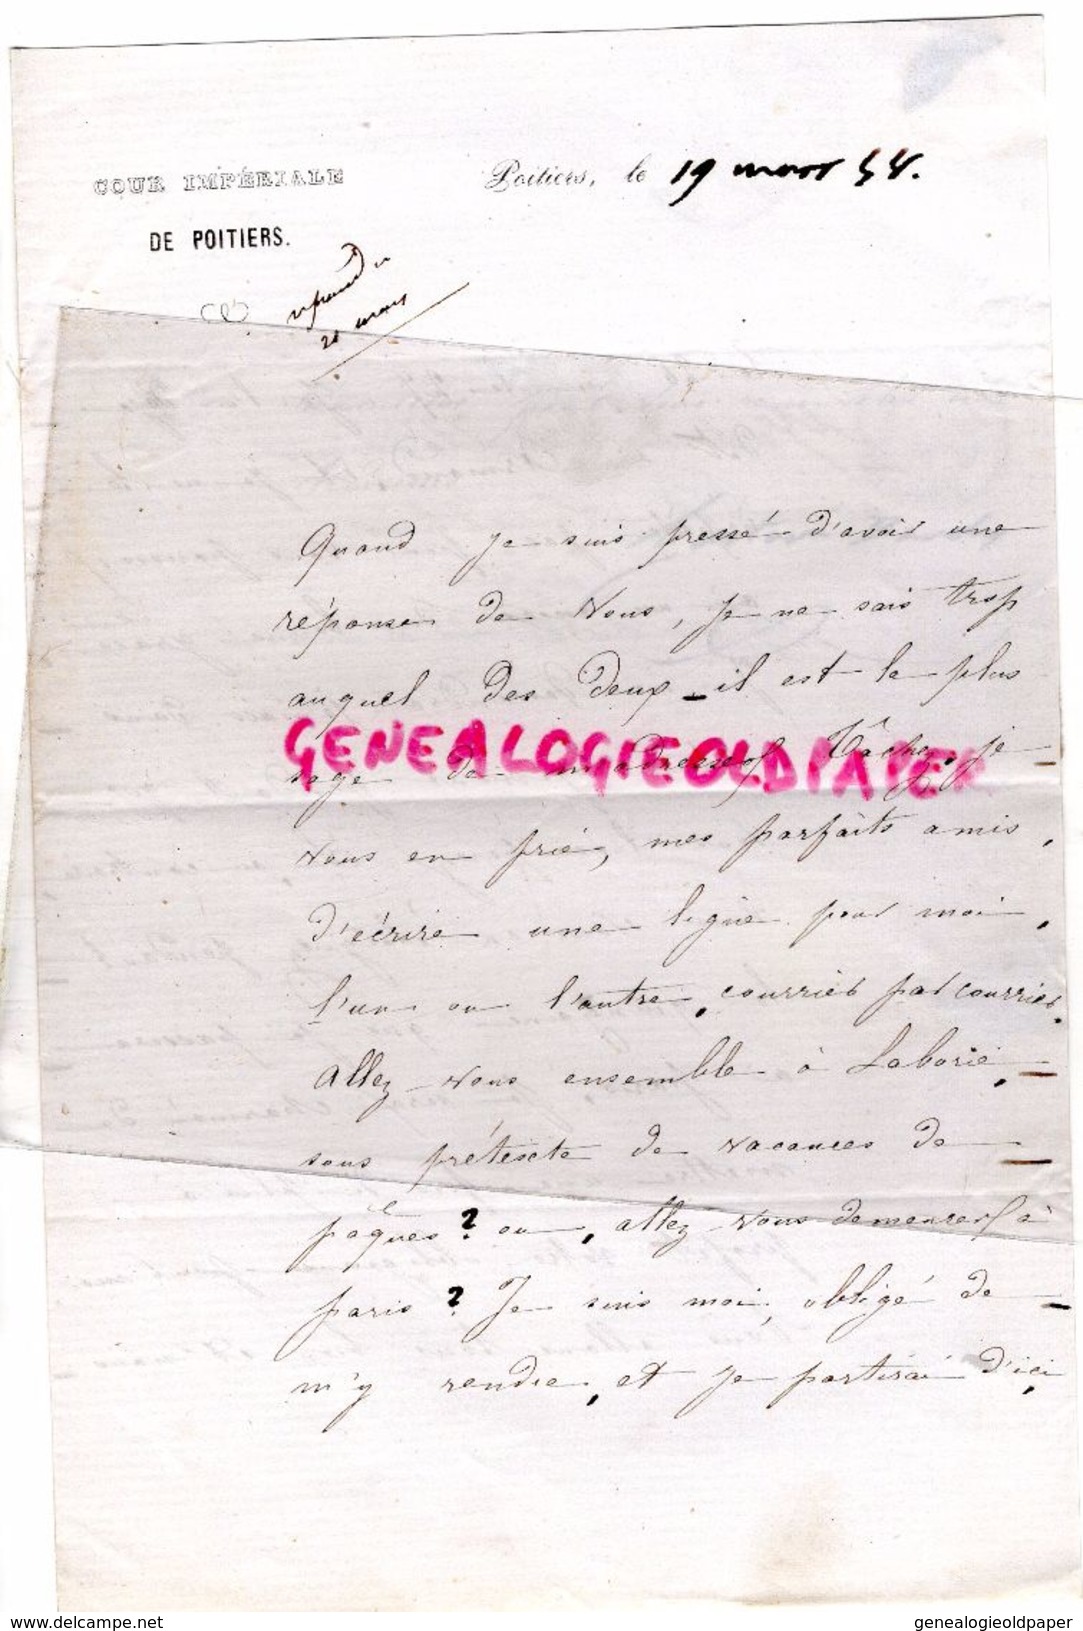 COUR IMPÉRIALE
DE POITIERS.
Poitiers, le 19 mars 58.
répondu
21 mars
Quand je suis pressé d'avoir une
réponse de vous, je ne sais trop
auquel des deux il est le plus
sage de m'adresser. Tâchez, je
GENEALOGIEOLDPAPER
vous en prie, mes parfaits amis,
d'écrire une ligne pour moi,
l'un ou l'autre, courrier par courrier.
allez vous ensemble à Laborie,
sous prétexte de vacances de
pâques? ou, allez vous demeurer à
paris? Je suis moi, obligé de
m'y rendre, et je partirai d'ici,
delcampe.net
genealogieoldpaper